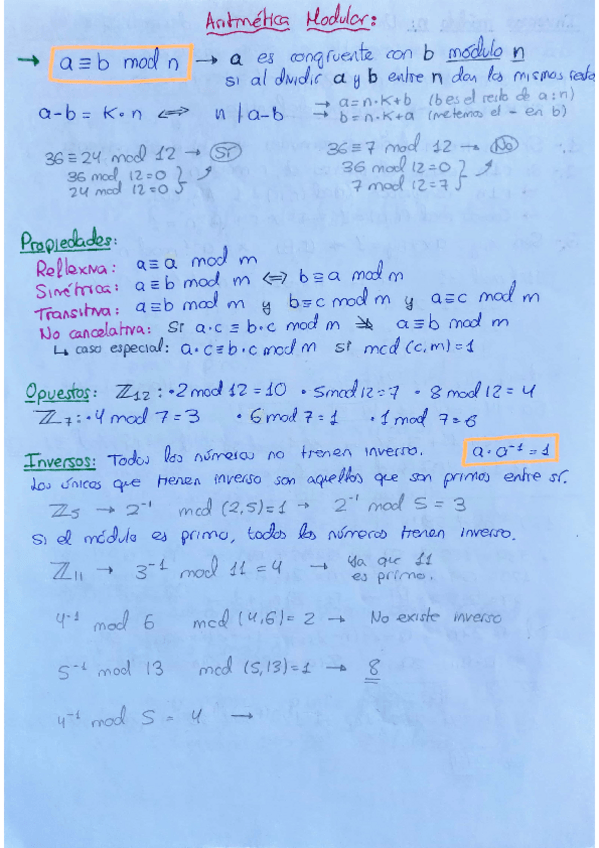 Aritmética Modular:
→ a ≡ b mod n → a es congruente con b módulo n
si al dividir a y b entre n dan los mismos resto
a-b = K·n ⟺ n | a-b → a = n·K+b (b es el resto de a:n)
→ b = n·K+a (metemos el - en b)
36 ≡ 24 mod 12 → Sí 36 ≡ 7 mod 12 → No
36 mod 12 = 0 36 mod 12 = 0
24 mod 12 = 0 7 mod 12 = 7
Propiedades:
Reflexiva: a ≡ a mod m
Simétrica: a ≡ b mod m ⟺ b ≡ a mod m
Transitiva: a ≡ b mod m y b ≡ c mod m y a ≡ c mod m
No cancelativa: Si a·c ≡ b·c mod m ⇏ a ≡ b mod m
↳ caso especial: a·c ≡ b·c mod m si mcd (c,m) = 1
Opuestos: ℤ12: ·2 mod 12 = 10 · 5 mod 12 = 7 · 8 mod 12 = 4
ℤ7: ·4 mod 7 = 3 · 6 mod 7 = 1 · 1 mod 7 = 6
Inversos: Todos los números no tienen inverso. a·a⁻¹ = 1
Los únicos que tienen inverso son aquellos que son primos entre sí.
ℤ5 → 2⁻¹ mcd (2,5) = 1 → 2⁻¹ mod 5 = 3
Si el módulo es primo, todos los números tienen inverso.
ℤ11 → 3⁻¹ mod 11 = 4 → Ya que 11
es primo.
4⁻¹ mod 6 mcd (4,6) = 2 → No existe inverso
5⁻¹ mod 13 mcd (5,13) = 1 → 8
4⁻¹ mod 5 = 4 →